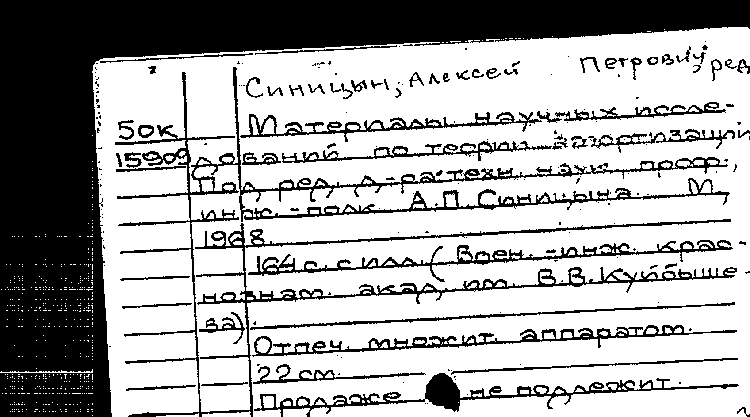 Синицын, Алексей Петрович, ред.
50к Материалы научных иссле-
15909 дований по теории амортизации
Под ред. д-ра техн. наук, проф.,
инж.-полк. А.П. Синицына. М.,
1968.
164 с. с илл. (Воен.-инж. крас-
нознам. акад. им. В.В. Куйбыше-
ва).
Отпеч. множит. аппаратом.
22 см.
Продаже не подлежит.